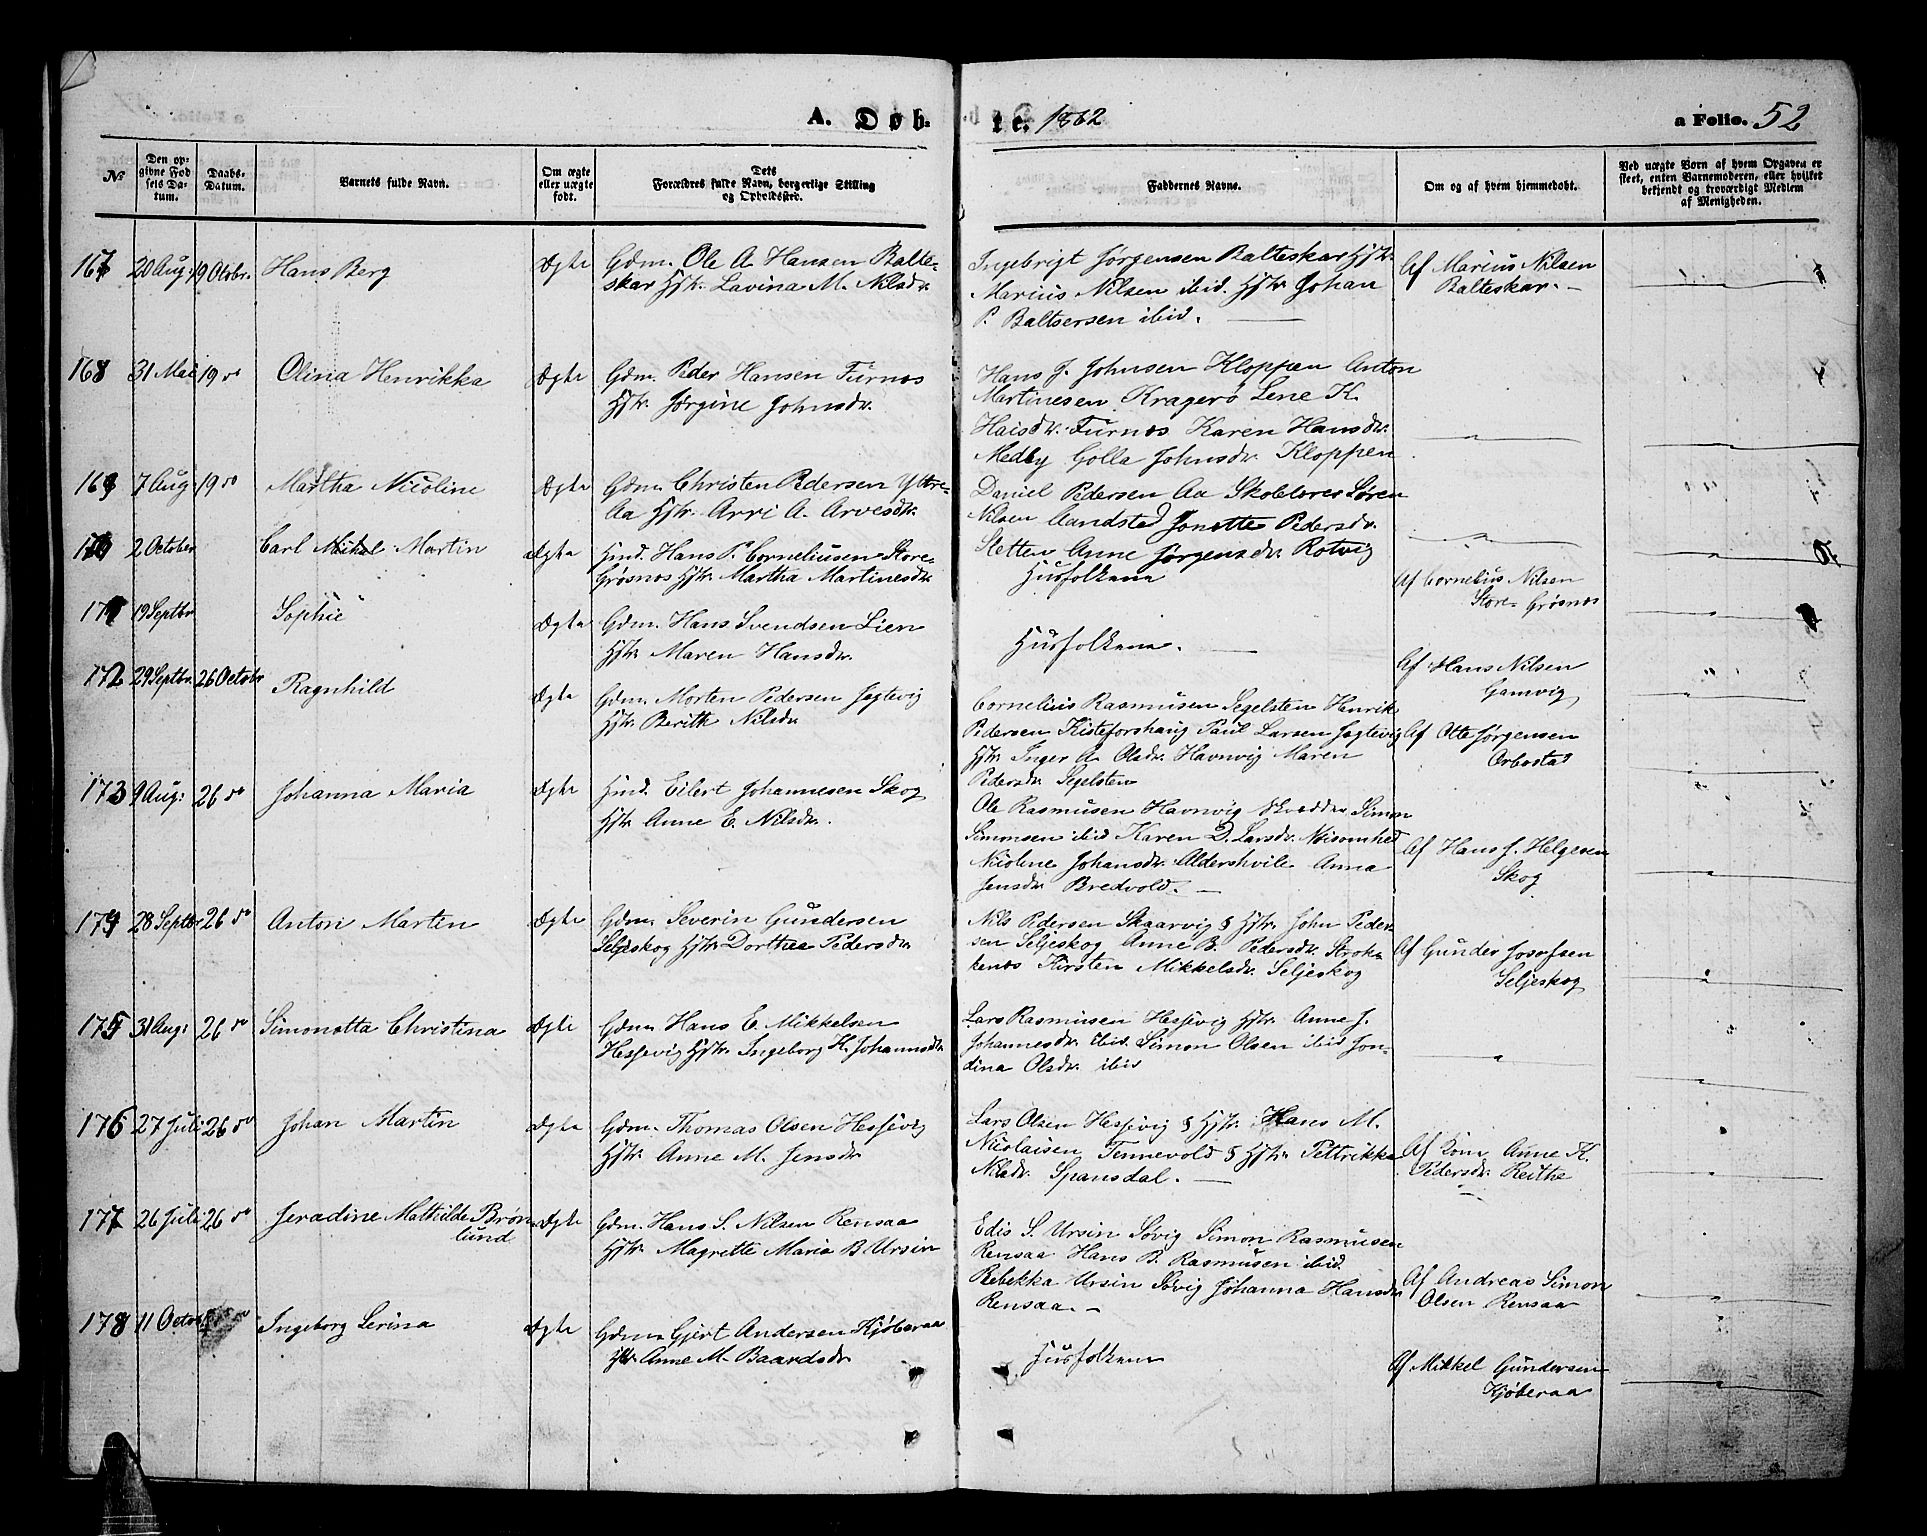 A. Døb-
te. 1862
a Folio. 52
№
Den op-
givne Fød
sels Da-
tum.
Daabs-
Datum.
Barnets fulde Navn.
Om ægte
eller uægte
født.
Dets
Forældres fulde Navn, borgerlige Stilling
og Opholdssted.
Faddernes Navne.
Om og af hvem hjemmedøbt.
Ved uægte Børn af hvem Opgaven er
skeet, enten Barnemoderen, eller hvilket
bekjendt og troværdigt Medlem
af Menigheden.
167 20 Aug: 19 Otobr. Hans Berg Ægte
Gdm. Ole A Hansen Balte-
skar Hstr. Lavina M. Nilsdr.
Ingebrigt Jørgensen Balteskar Hstr.
Marius Nilsen ibid. Hstr Johan
P. Baltsersen ibid.
Af Marius Nilsen
Balteskar.
168 31 Mai 19 do Olina Henrikka Ægte
Gdm. Peder Hansen Furnes
Hstr. Jørgine Johnsdr.
Hans J. Johnsen Kloppen Anton
Martinesen Kragerø Lene K.
Haisdr. Furnes Karen Hansdr.
Medby Golla Johnsdr. Kloppen
169 7 Aug 19 do Martha Nicoline Ægte
Gdm. Christen Pedersen Yttre-
Aa Hstr. Arri A. Arvesdr.
Daniel Pedersen Aa Skolelærer Søren
Nilsen Aandsted Jonette Pedersdr.
Stetten Anne Jørgensdr. Rotvig
170 2 October Carl Mikal Martin Ægte
Hmd. Hans P. Corneliusen Store-
Grøsnes Hstr. Martha Martinesdr.
Husfolkene
Af Cornelius Nilsen
Store-Grøsnes
171 19 Septbr Sophie Ægte
Gdm. Hans Svendsen Lien
Hstr Maren Hansdr.
Husfolkene.
Af Hans Nilsen
Gamvig
172 29 Septbr. 26 Octobr Ragnhild Ægte
Gdm. Morten Pedersen Jegtevig
Hstr Berith Nilsdr
Cornelius Rasmusen Segelsten Henrik
Pedersen Kisteforshaug Paul Larsen Jegtevig
Hstr Inger A Olsdr. Havnvig Maren
Pedersdr. Segelsten
Af Otte Jørgensen
Orbosta
173 9 Aug: 26 do Johanna Maria Ægte
Hmd. Eilert Johannesen Skog
Hstr Anne E. Nilsdr.
Ole Rasmusen Havnvig Skrædder Simon
Simonsen ibid Karen D. Larsdr. Nøisomhed
Nicoline Johansdr. Aldershvile Anna
Jensdr Bredvold.
Af Hans J. Helgesen
Skog
174 28 Septbr 26 do Anton Martin Ægte
Gdm. Severin Gundersen
Seljeskog Hstr Dorthea Pedersdr
Nils Pedersen Skaarvig & Hstr John Peder-
sen Seljeskog Anne B. Pedersdr. Strok-
kenes Kirsten Mikkelsdr. Seljeskog
Af Gunder Josefsen
Seljeskog
175 31 Aug: 26 do Simonetta Christina Ægte
Gdm Hans E. Mikkelsen
Hessevig Hstr Ingeborg K. Johannsdr.
Lars Rasmusen Hessevig Hstr Anne J.
Johannesdr. ibid. Simon Olsen ibid Jon-
dina Olsdr. ibid
176 27 Juli 26 do Johan Martin Ægte
Gdm. Thomas Olsen Hessevig
Hstr. Anne M. Jensdr
Lars Olsen Hessevig & Hstr Hans M.
Nicolaisen Tennevold & Hstr. Pettrikka
Nilsdr. Spansdal.
Af Kone Anne K.
Pedersdr. Reithe
177 26 Juli 26 do Jeradine Mathilde Brøn
lund Ægte
Gdm. Hans S. Nilsen Rensaa
Hstr. Magrette Maria B Ursin
Edis S. Ursin Søvig Simon Rasmusen
Rensaa Hans B. Rasmusen ibid.
Rebekka Ursin Søvig Johanna Hansdr
Rensaa.
Af Andreas Simon
Olsen Rensaa
178 11 Octobr Ingeborg Lerina Ægte
Gdm Gjert Andersen Kjøberaa
Hstr Anne M. Baardsdr
Husfolkene
Af Mikkel Gundersen
Kjøberaa